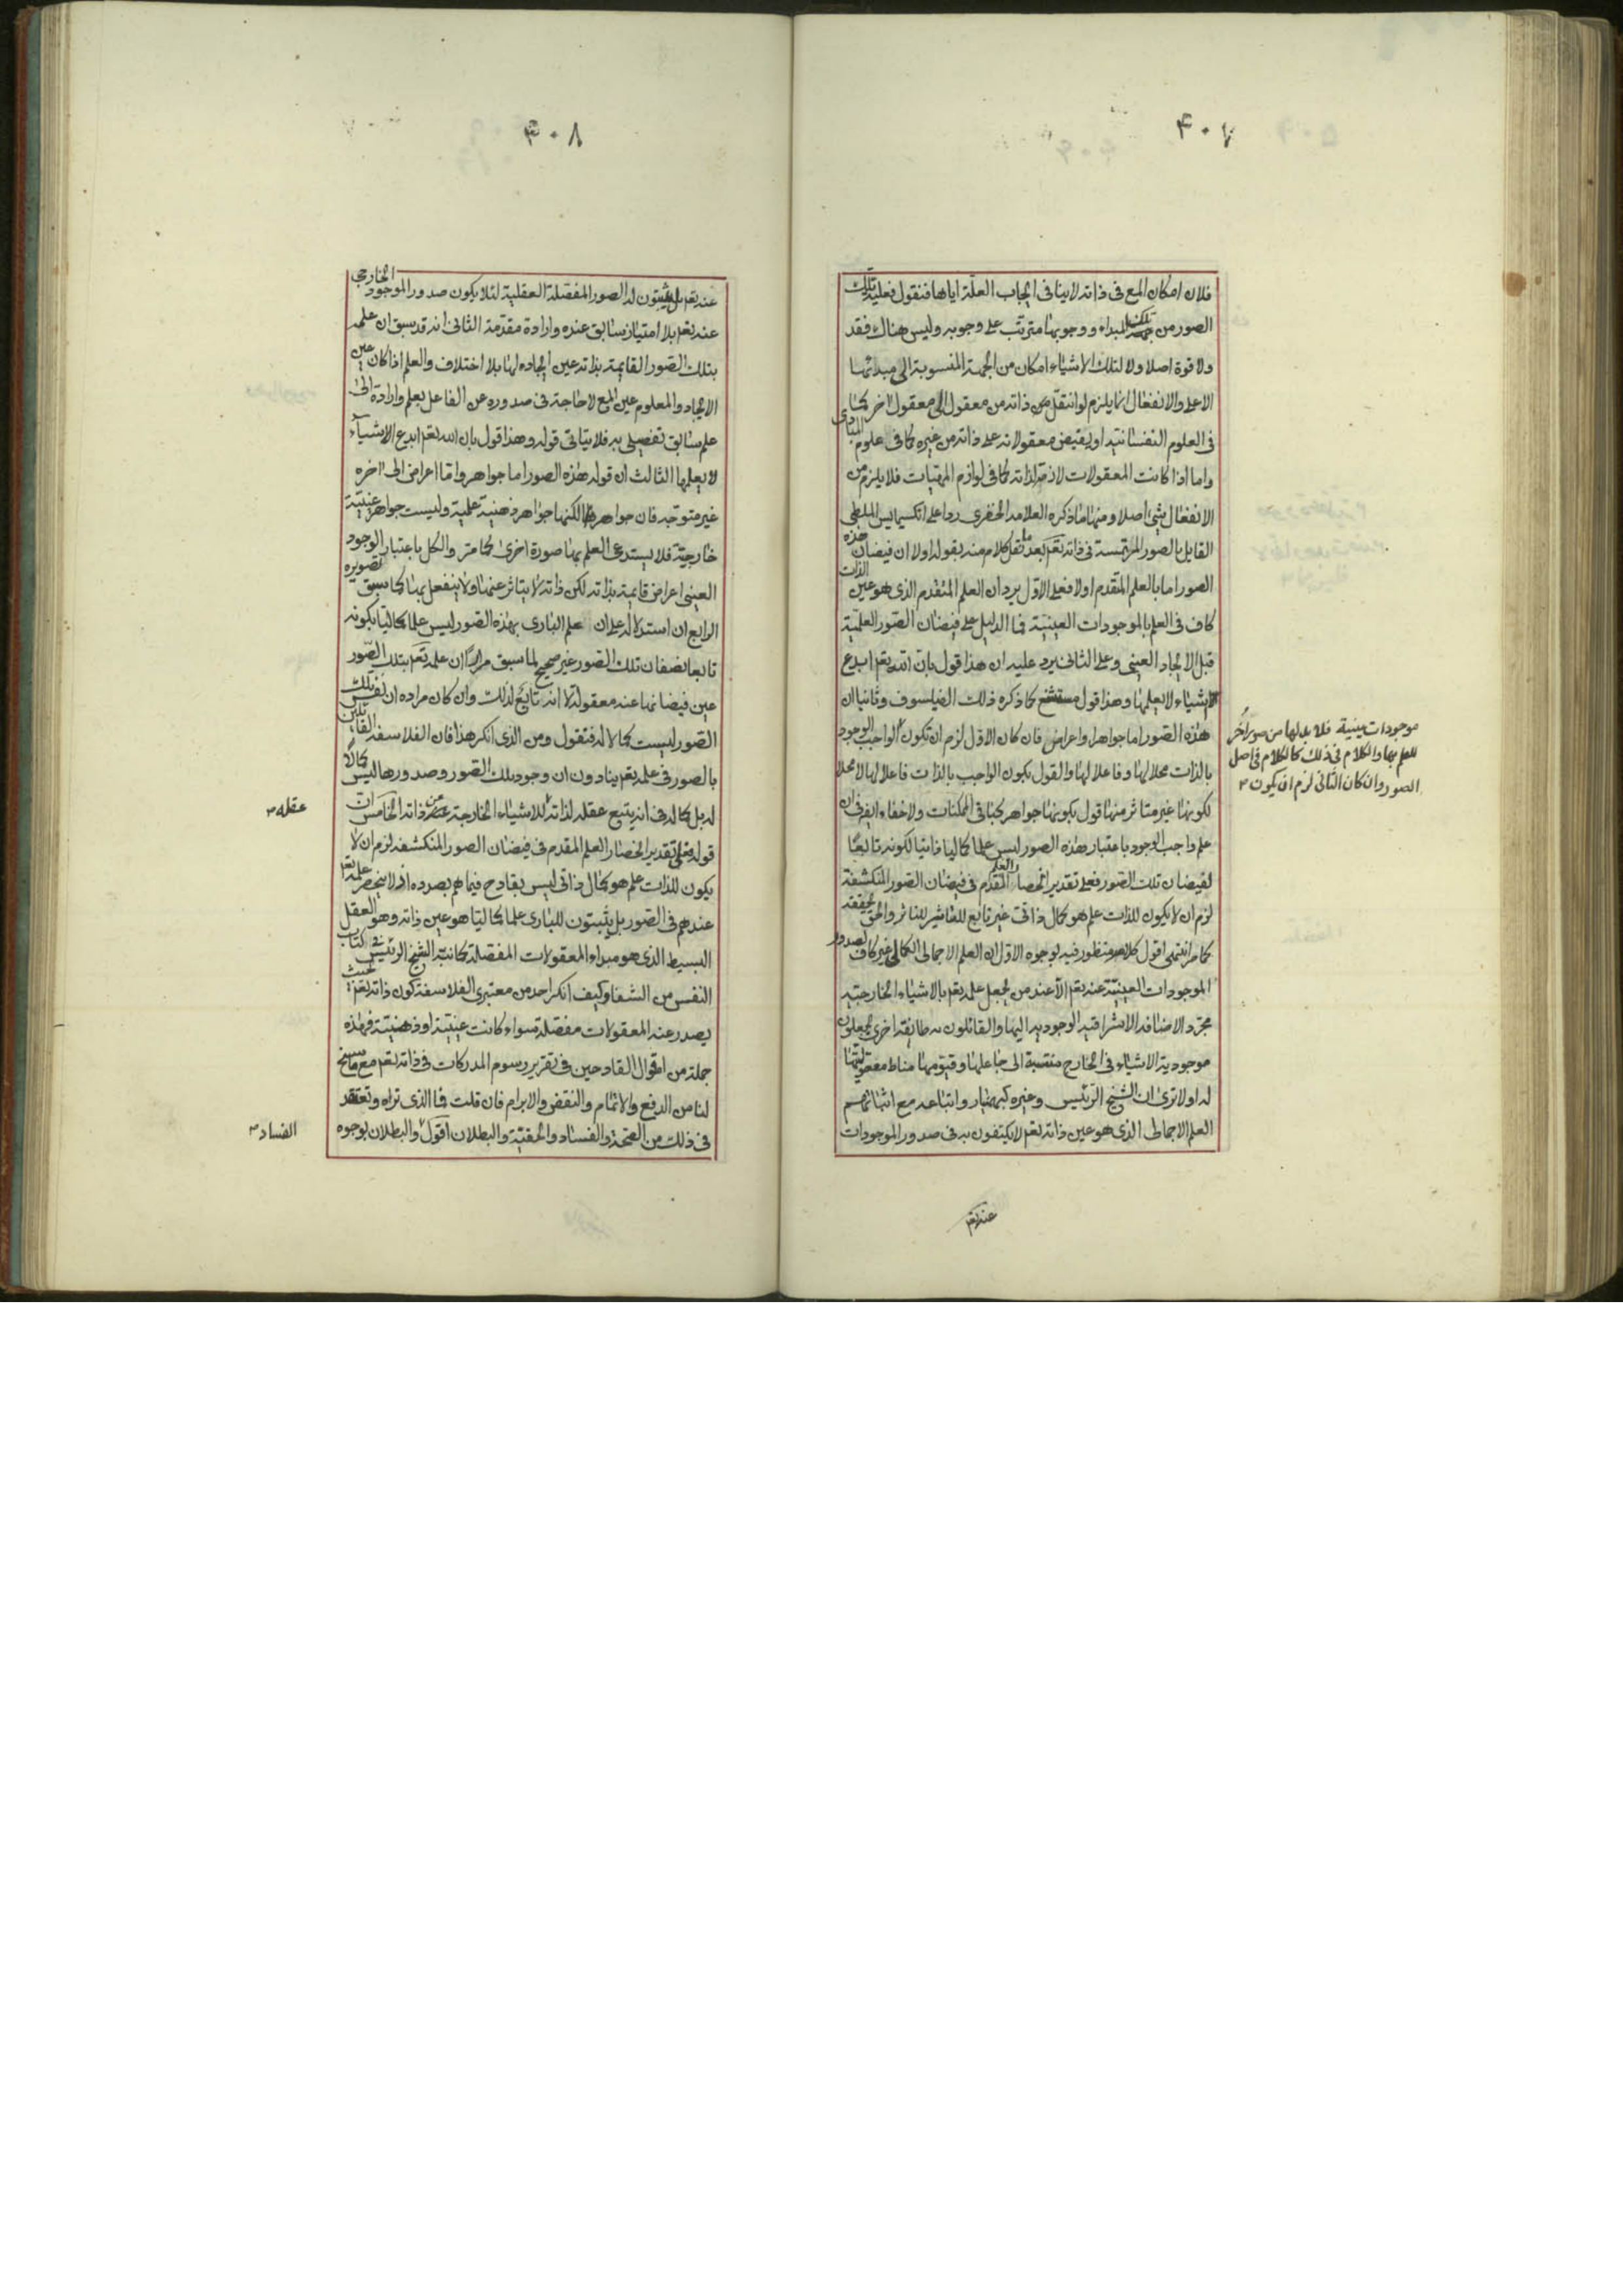 ۴۰۷
فلان امكان المع فى ذاته لا ينافى ايجاب العلة اياها فنقول فعلية تلك
الصور من المبداء ووجوبها مترتب على وجوبه وليس هناك فقد
ولا قوة اصلا ولا لتلك الاشياء امكان من الجهة المنسوبة الى مبدائها
الاعلى والانفعال انما يلزم لو انتقل من ذاته من معقول الى معقول اخر كما
فى العلوم النفسانية او يفيض معقولاته على ذاته من غيره كما فى علوم المبادى
واما اذا كانت المعقولات لازمة لذاته كما فى لوازم المهيات فلا يلزم من
الانفعال شئ اصلا ومنها ما ذكره العلامه الخفرى ردا على انكسيمايس الملطى
القايل بالصور المرتسمة فى ذاته تعم بعد ما نقل كلام منه بقوله اولا ان فيضان هذه
الصور اما بالعلم المتقدم اولا فعلى الاول يرد ان العلم المتقدم الذى هو عين الذات
كاف فى العلم بالموجودات العينية فما الدليل على فيضان الصور العلمية
قبل الايجاد العينى وعلى الثانى يرد عليه ان هذا قول بان الله تعم ابدع
الاشياء لا يعلمها وهذا قول مستشنع كما ذكره ذلك الفيلسوف وثانيا ان
هذه الصور اما جواهر او اعراض فان كان الاول لزم ان تكون الواجب الوجود
بالذات محلا لها وفاعلا لها والقول بكون الواجب بالذات فاعلا لها لا محلا
لكونها غير متاثر منها قول بكونها جواهر كباقى الممكنات ولا خفاء ايضا فى ان
علم واجب الوجود باعتبار هذه الصور ليس علما كماليا ذاتيا لكونه تابعا
لفيضان تلك الصور فعلى تقدير انحصار العلم المقدم فى فيضان الصور المنكشفة
لزم ان لا يكون للذات علم هو كمال ذاتى غير تابع للتاثير للتاثر والحق تحقيقه
كما مر انتهى اقول كلامه منظور فيه لوجوه الاول ان العلم الاجمالى الكمالى غير كاف لصدور
الموجودات العينية عنه تعم الا عند من يجعل علمه تعم بالاشياء الخارجية
مجرد الاضافه الاشراقيه الوجوديه اليها والقائلون به طايفة اخرى يجعلون
موجودية الاشياء فى الخارج منتسبة الى جاعلها وقيومها مناط معقوليتها
له اولا ترى ان الشيخ الرئيس وغيره كبهمنيار واتباعه مع اثباتهم
العلم الاجمالى الذى هو عين ذاته تعم لا يكتفون به فى صدور الموجودات
موجودات عينية فلا بد لها من صور اخر
للعلم بها والكلام فى ذلك كالكلام فى اصل
الصور وان كان الثانى لزم ان يكون
عنه تعم
۴۰۸
عنه تعم بل يثبتون له الصور المفصلة العقلية لئلا يكون صدور الموجود الخارجى
عنه تعم بلا امتياز سابق عنده وارادة مقدمة الثانى انه قد سبق ان علمه
بتلك الصور القايمة بذاته عين ايجاده لها بلا اختلاف والعلم اذا كان عين
الايجاد والمعلوم عين المع لا حاجة فى صدوره عن الفاعل بعلم وارادة الى
علم سابق تفصيلى به فلا يتاتى قوله وهذا قول بان الله تعم ابدع الاشياء
لا يعلمها الثالث ان قوله هذه الصور اما جواهر واما اعراض الى اخره
غير متوجه فان جواهرها لكنها جواهر ذهنية علمية وليست جواهر عينية
خارجية فلا يستدعى العلم بها صورة اخرى كما مر والكل باعتبار الوجود
العينى اعراض قايمة بذاته لكن ذاته لا يتاثر عنها ولا ينفعل بها كما سبق تصويره
الرابع ان استدلاله على ان علم البارى بهذه الصور ليس علما كماليا بكونه
تابعا لفيضان تلك الصور غير صحيح لما سبق مرارا ان علمه تعم بتلك الصور
عين فيضانها عنه معقولة لا انه تابع لذلك وان كان مراده ان نفس تلك
الصور ليست كمالا له فنقول ومن الذى انكر هذا فان الفلاسفه القائلين
بالصور فى علمه تعم ينادون ان وجود تلك الصور وصدورها ليس كمالا
له بل كماله فى انه يتبع عقله لذاته للاشياء الخارجة عن ذاته الخامس ان
قوله فعلى تقدير انحصار العلم المقدم فى فيضان الصور المنكشفه لزم ان لا
يكون للذات علم هو كمال ذاتى ليس بقادح فيما هم بصدده اذ لا ينحصر علمه تعم
عندهم فى الصور بل يثبتون للبارى علما كماليا هو عين ذاته وهو العقل
البسيط الذى هو مبداء المعقولات المفصلة كما نبه الشيخ الرئيس فى كتاب
النفس من الشفا وكيف انكر احد من معتبرى الفلاسفه كون ذاته تعم بحيث
يصدر عنه المعقولات مفصلة سواء كانت عينية او ذهنية فهذه
جملة من اقوال القادحين فى تقرير رسوم المدركات فى ذاته تعم مع ما سنح
لنا من الدفع والاتمام والنقض والابرام فان قلت فما الذى تراه وتعتقد
فى ذلك من الصحة والفساد والحقية والبطلان اقول والبطلان لوجوه
عقله
الفساد